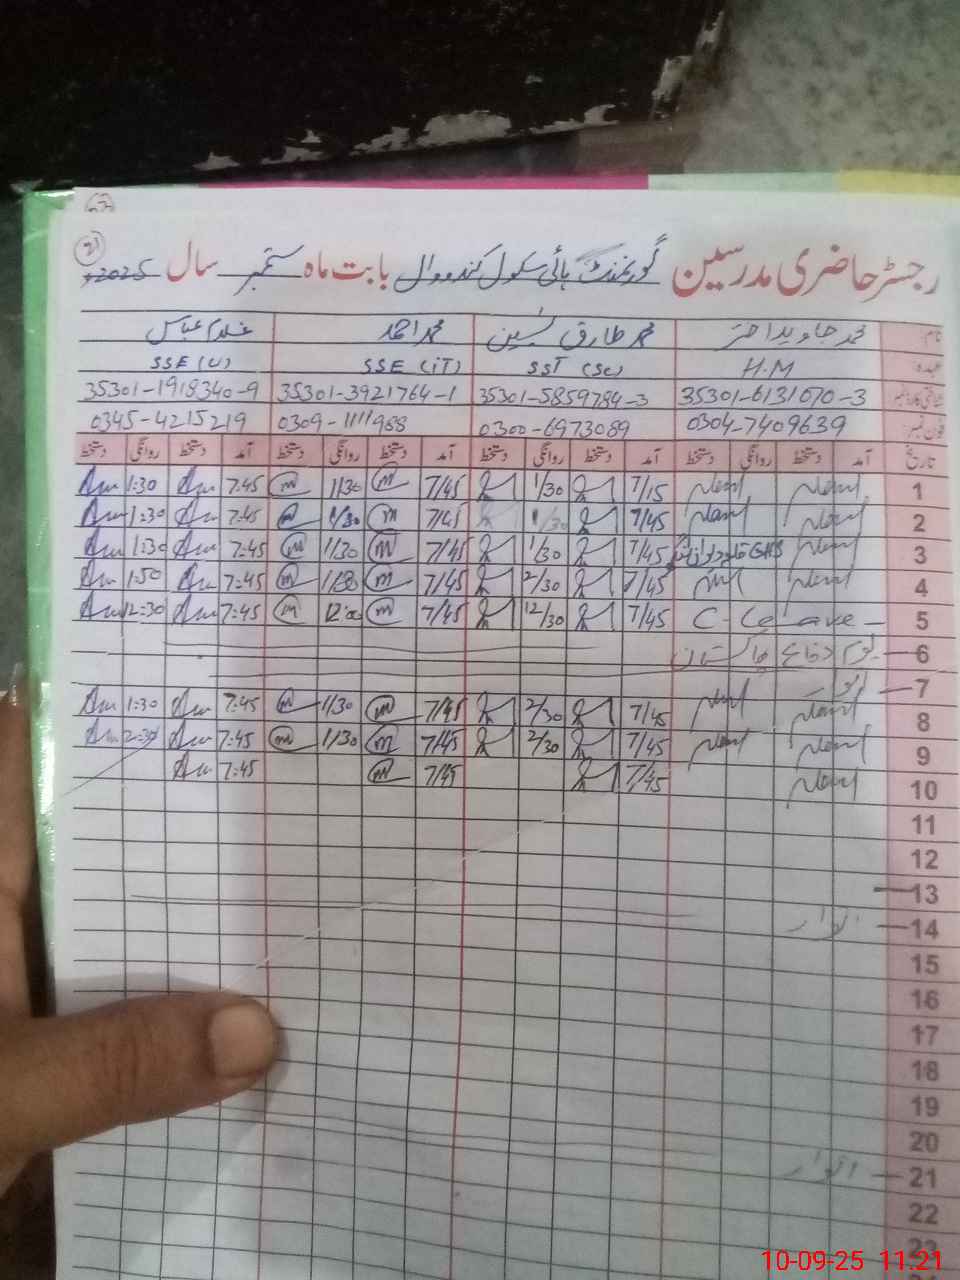 21
رجسٹر حاضری مدرسین گورنمنٹ ہائی سکول کندووال بابت ماہ ستمبر سال 2025
نام: محمد جاوید اختر محمد طارق یٰسین محمد احمد غلام عباس
عہدہ: H.M SST (Sc) SSE (IT) SSE (U)
شناختی کارڈ نمبر 35301-6131070-3 35301-5859784-3 35301-3921764-1 35301-1918340-9
فون نمبر: 0304-7409639 0300-6973089 0309-1111968 0345-4215219
تاریخ آمد دستخط روانگی دستخط آمد دستخط روانگی دستخط آمد دستخط روانگی دستخط آمد دستخط روانگی دستخط
1 7/15 1/30 7/45 1/30 7:45 1:30
2 7/45 1/30 7/45 1/30 7:45 1:30
3 GHS 7/45 1/30 7/45 1/30 7:45 1:30
4 7/45 2/30 7/45 7:45 1:50
5 C-Leave 7/45 12/30 7/45 12:00 7:45 12:30
6 یوم دفاع پاکستان
7 اتوار
8 7/45 2/30 7/45 1/30 7:45 1:30
9 7/45 2/30 7/45 1/30 7:45
10 7/45 7/45 7:45
11
12
13
14 اتوار
15
16
17
18
19
20
21 اتوار
22
23
10-09-25 11.21